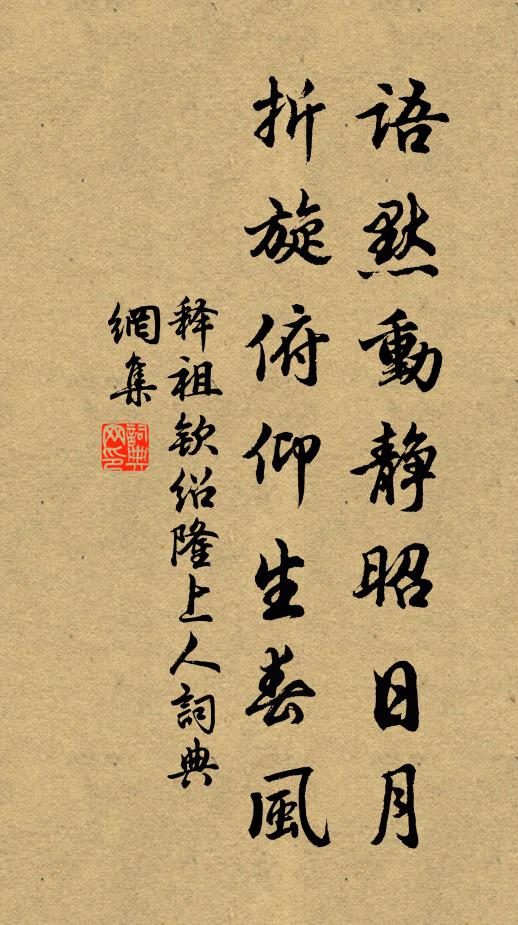 語默動静昭日月
折旋俯仰生春風
释祖欽绍隆上人詞典
網集
詞典网印